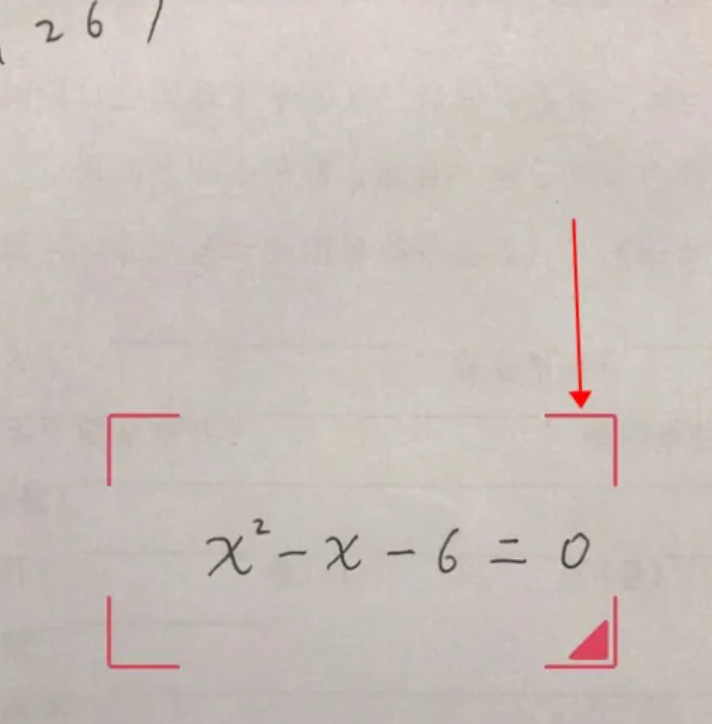 2 6 /
x² - x - 6 = 0